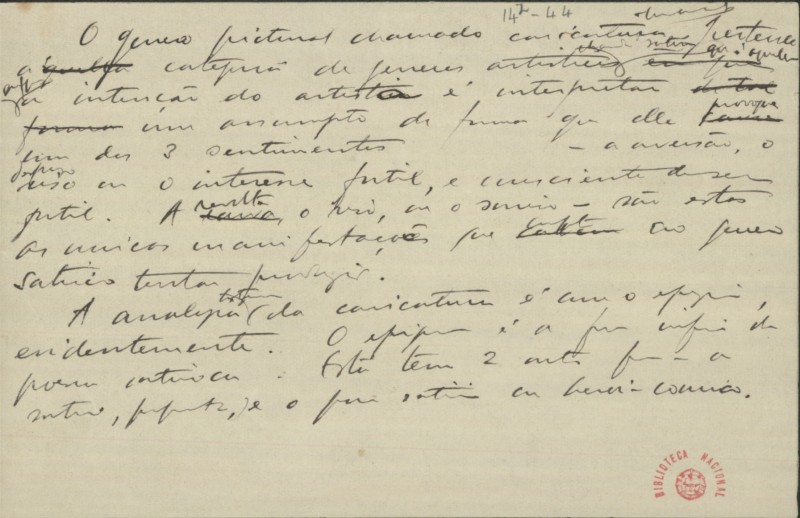 14²-44
O genero pictural chamado caricatura pertence
á aquella categoria de generos artisticos em que
a intenção do artista é interpretar
um assumpto de forma que elle provoque
um dos 3 sentimentos — a aversão, o
desprezo
riso ou o interesse futil, e consciente de ser
futil. A revolta, o riso, ou o sorriso — são estas
as unicas manifestações que ao genero
satirico tenta produzir.
A analogia da caricatura é com o epigramma,
evidentemente. O epigramma é a forma infima da
poesia satirica. Esta tem 2 outras formas — a
satira, propriamente, e o poema satirico ou heroi-comico.
BIBLIOTECA NACIONAL